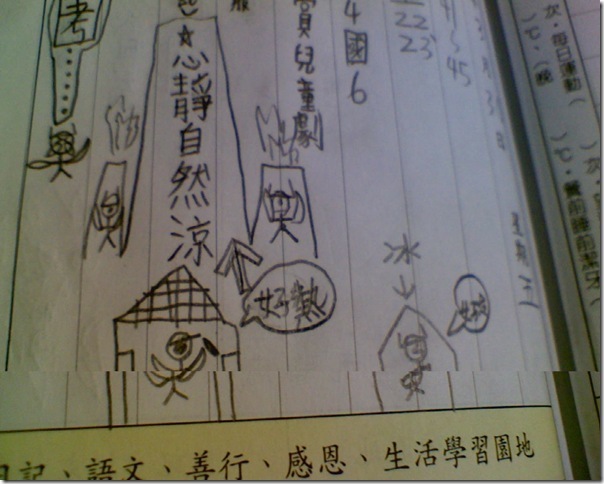 次，每日運動（
）℃，（晚
）℃，餐前睡前潔牙（
星期
41~45
22
23
4國6
賞兒童劇
服
☆心靜自然涼
考......
好熱
冰
日記、語文、善行、感恩、生活學習園地